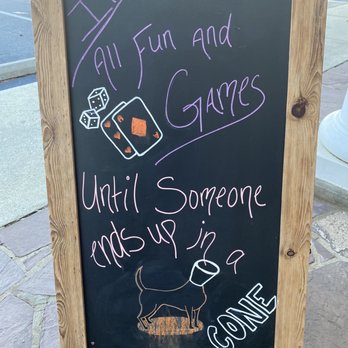 All Fun and
Games
Until Someone
ends up in a
CONE